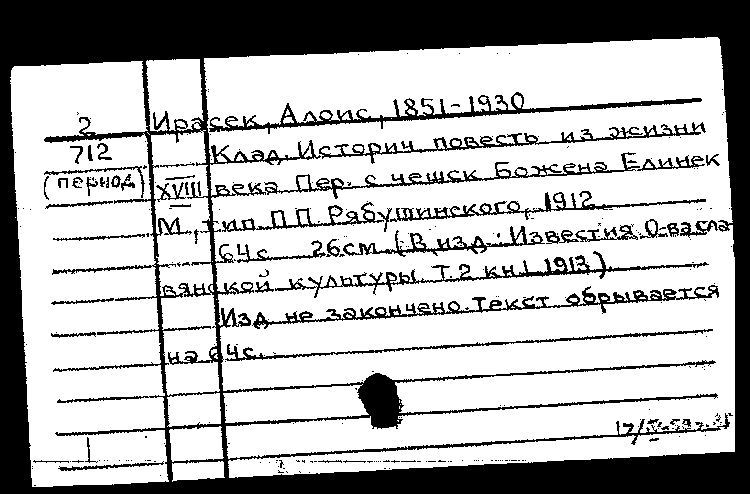 2 Ирасек, Алоис, 1851-1930
712 Клад. Историч. повесть из жизни
(период) XVIII века Пер. с чешск Божена Елинек
М., тип. П.П. Рябушинского, 1912.
64с 26см. (В изд.: Известия О-ва сла-
вянской культуры. Т.2 кн.1. 1913.)
Изд. не закончено. Текст обрывается
на 64с.